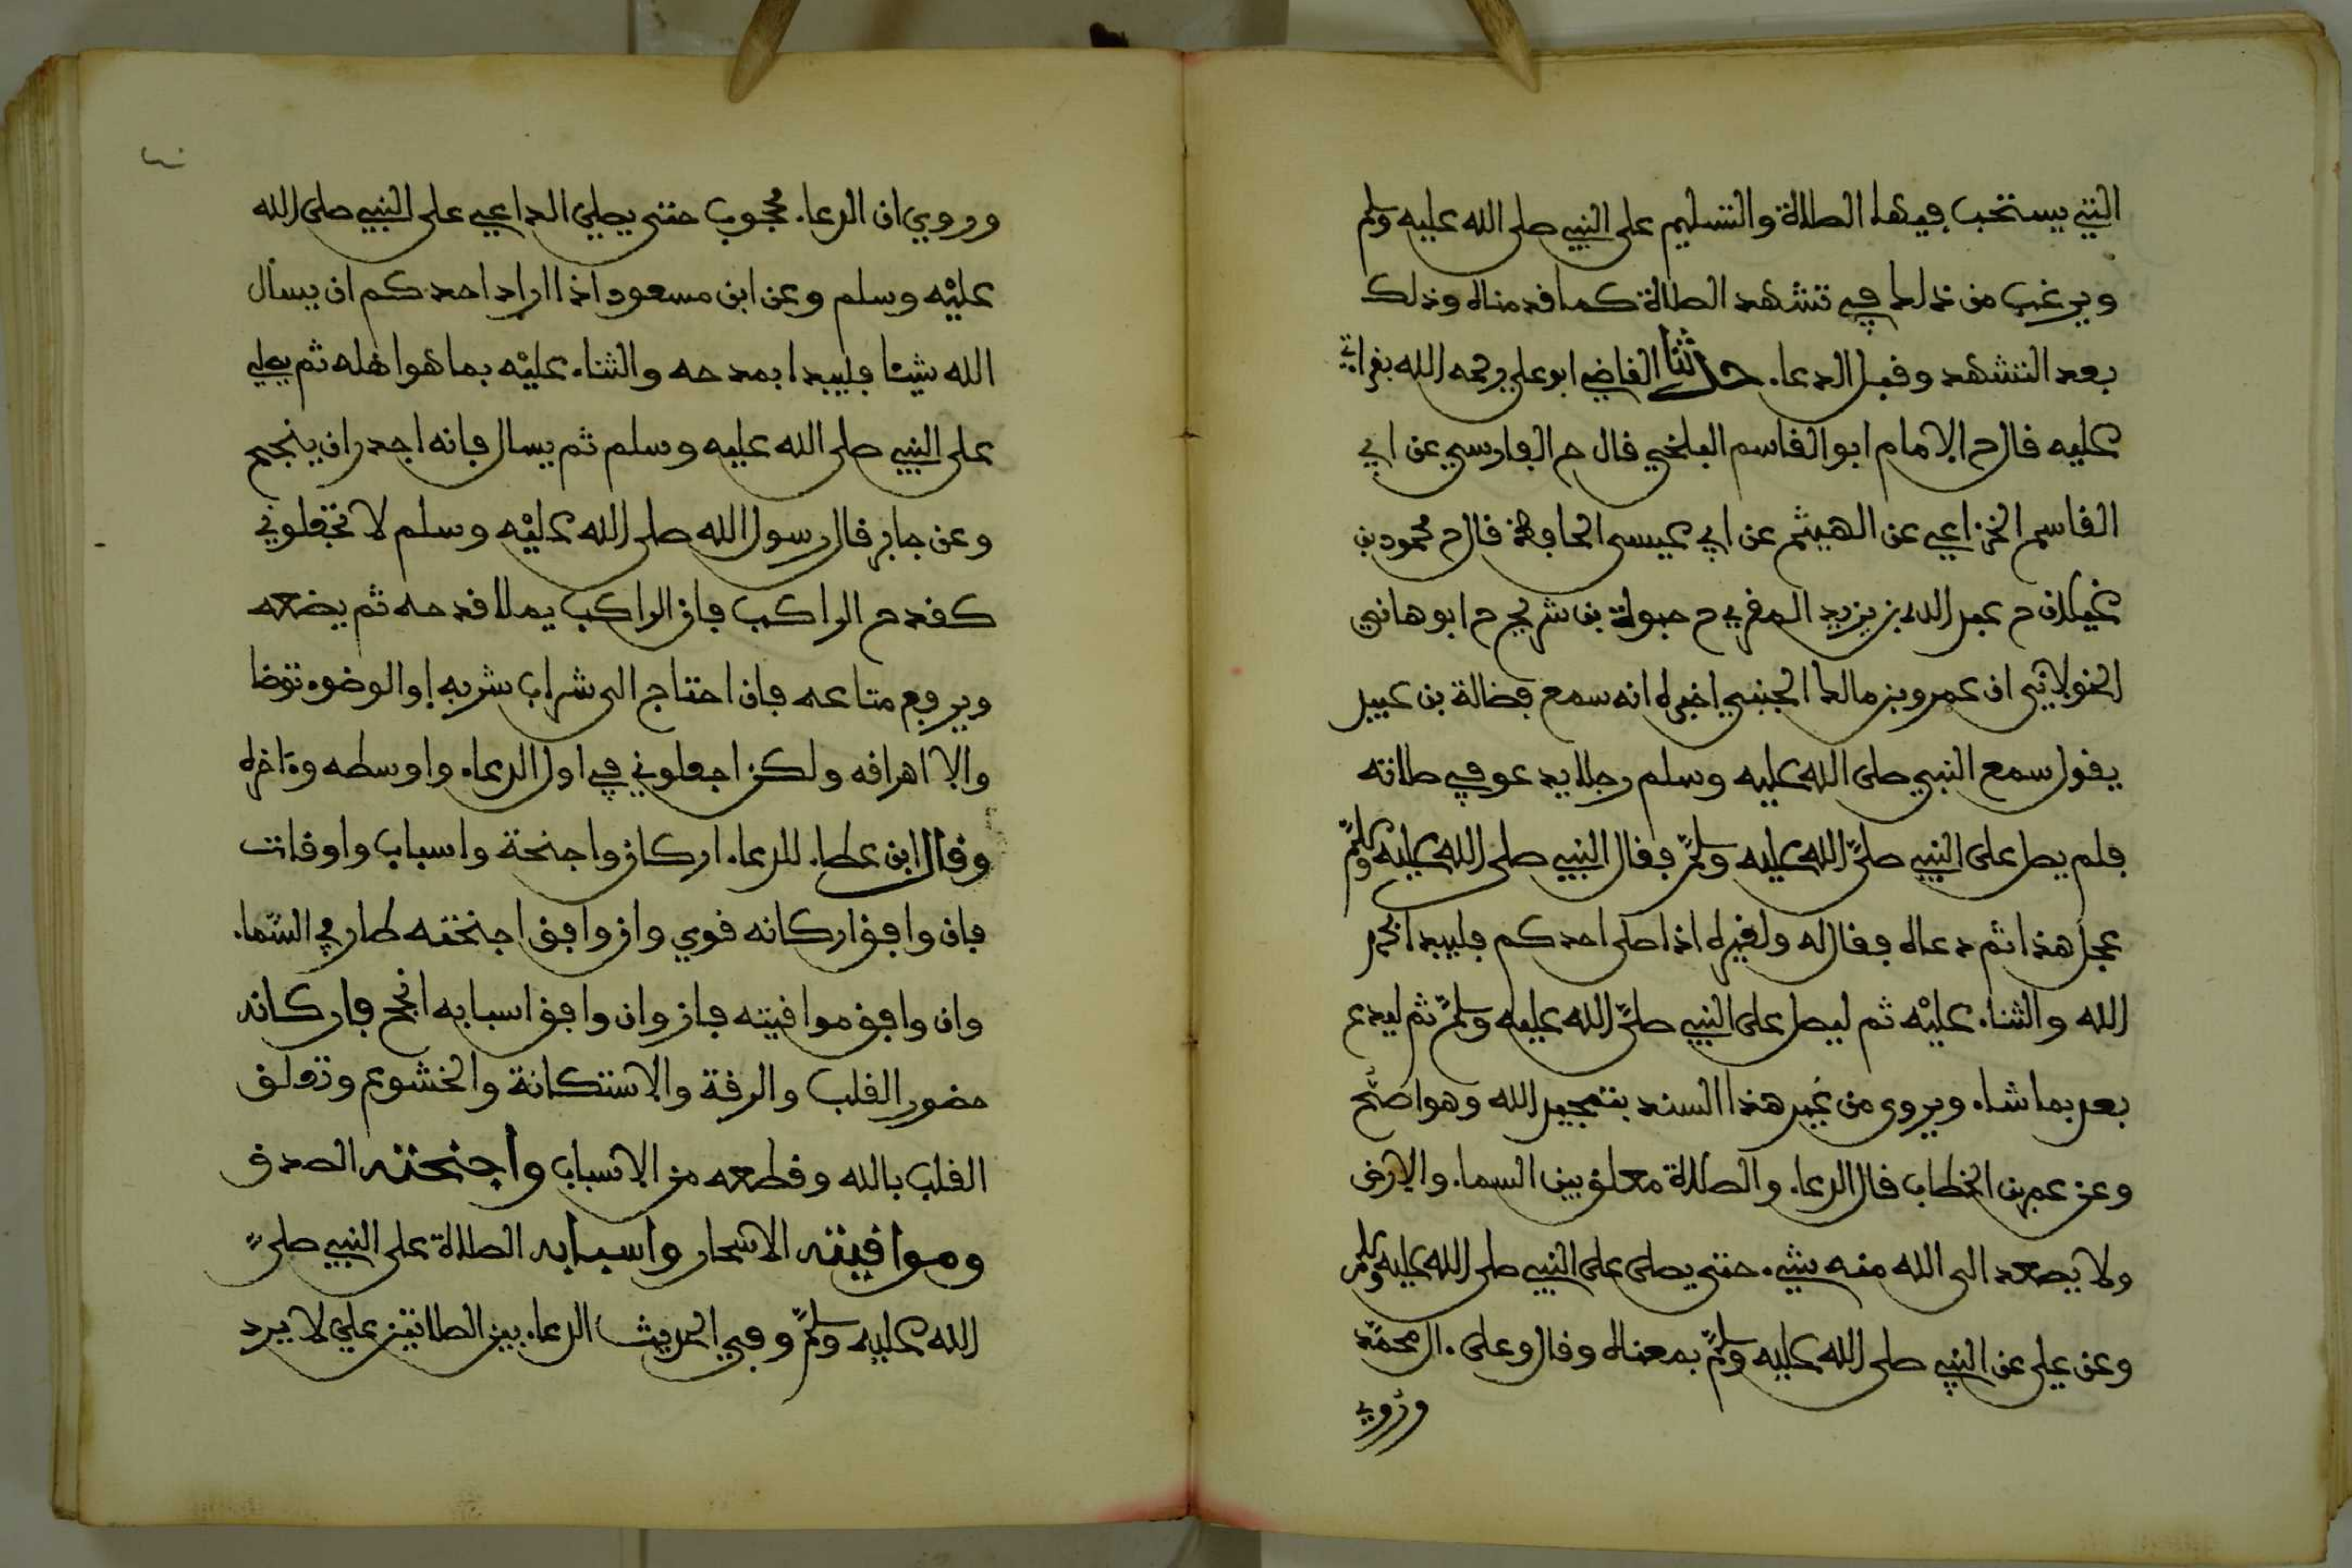 التي يستحب فيها الصلاة والتسليم على النبي صلى الله عليه وسلم
ويرغب من ذلك في تشهد الصلاة كما قدمناه وذلك
بعد التشهد وقبل الدعا. حدثنا القاضي ابو علي رحمه الله بقراتي
عليه قال ح الامام ابو القاسم البلخي قال ح الفارسي عن ابي
القاسم الخزاعي عن الهيثم عن ابي عيسى الحافظ قال ح محمود بن
غيلان ح عبد الله بن يزيد المقري ح حيوة بن شريح ح ابو هاني
الخولاني ان عمرو بن مالك الجنبي اخبره انه سمع فضالة بن عبيد
يقول سمع النبي صلى الله عليه وسلم رجلا يدعو في صلاته
فلم يصل على النبي صلى الله عليه وسلم فقال النبي صلى الله عليه وسلم
عجل هذا ثم دعاه فقال له ولغيره اذا صلى احدكم فليبدا بحمد
الله والثناء عليه ثم ليصل على النبي صلى الله عليه وسلم ثم ليدع
بعد بما شاء ويروى من غير هذا السند بتمجيد الله وهو اصح
وعن عمر بن الخطاب قال الدعا. والصلاة معلق بين السما. والارض
ولا يصعد الى الله منه شيء حتى يصلى على النبي صلى الله عليه وسلم
وعن علي عن النبي صلى الله عليه وسلم بمعناه وقال وعلى ءال محمد
وروي
وروي ان الدعا. محجوب حتى يصلي الداعي على النبي صلى الله
عليه وسلم وعن ابن مسعود اذا اراد احدكم ان يسأل
الله شيئا فليبدا بمدحه والثناء عليه بما هو اهله ثم يصلي
على النبي صلى الله عليه وسلم ثم يسال فانه اجدر ان ينجح
وعن جابر قال رسول الله صلى الله عليه وسلم لا تجعلوني
كقدح الراكب فان الراكب يملا قدحه ثم يضعه
ويرفع متاعه فان احتاج الى شراب شربه او الوضوء توضا
والا اهراقه ولكن اجعلوني في اول الدعاء واوسطه وءاخره
وقال ابن عطا. للدعاء اركان واجنحة واسباب واوقات
فان وافق اركانه قوي وان وافق اجنحته طار في السما.
وان وافق مواقيته فاز وان وافق اسبابه انجح فاركانه
حضور القلب والرقة والاستكانة والخشوع وتعلق
القلب بالله وقطعه من الاسباب واجنحته الصدق
ومواقيته الاسحار واسبابه الصلاة على النبي صلى
الله عليه وسلم وفي الحديث الدعاء بين الصلاتين علي لا يرد